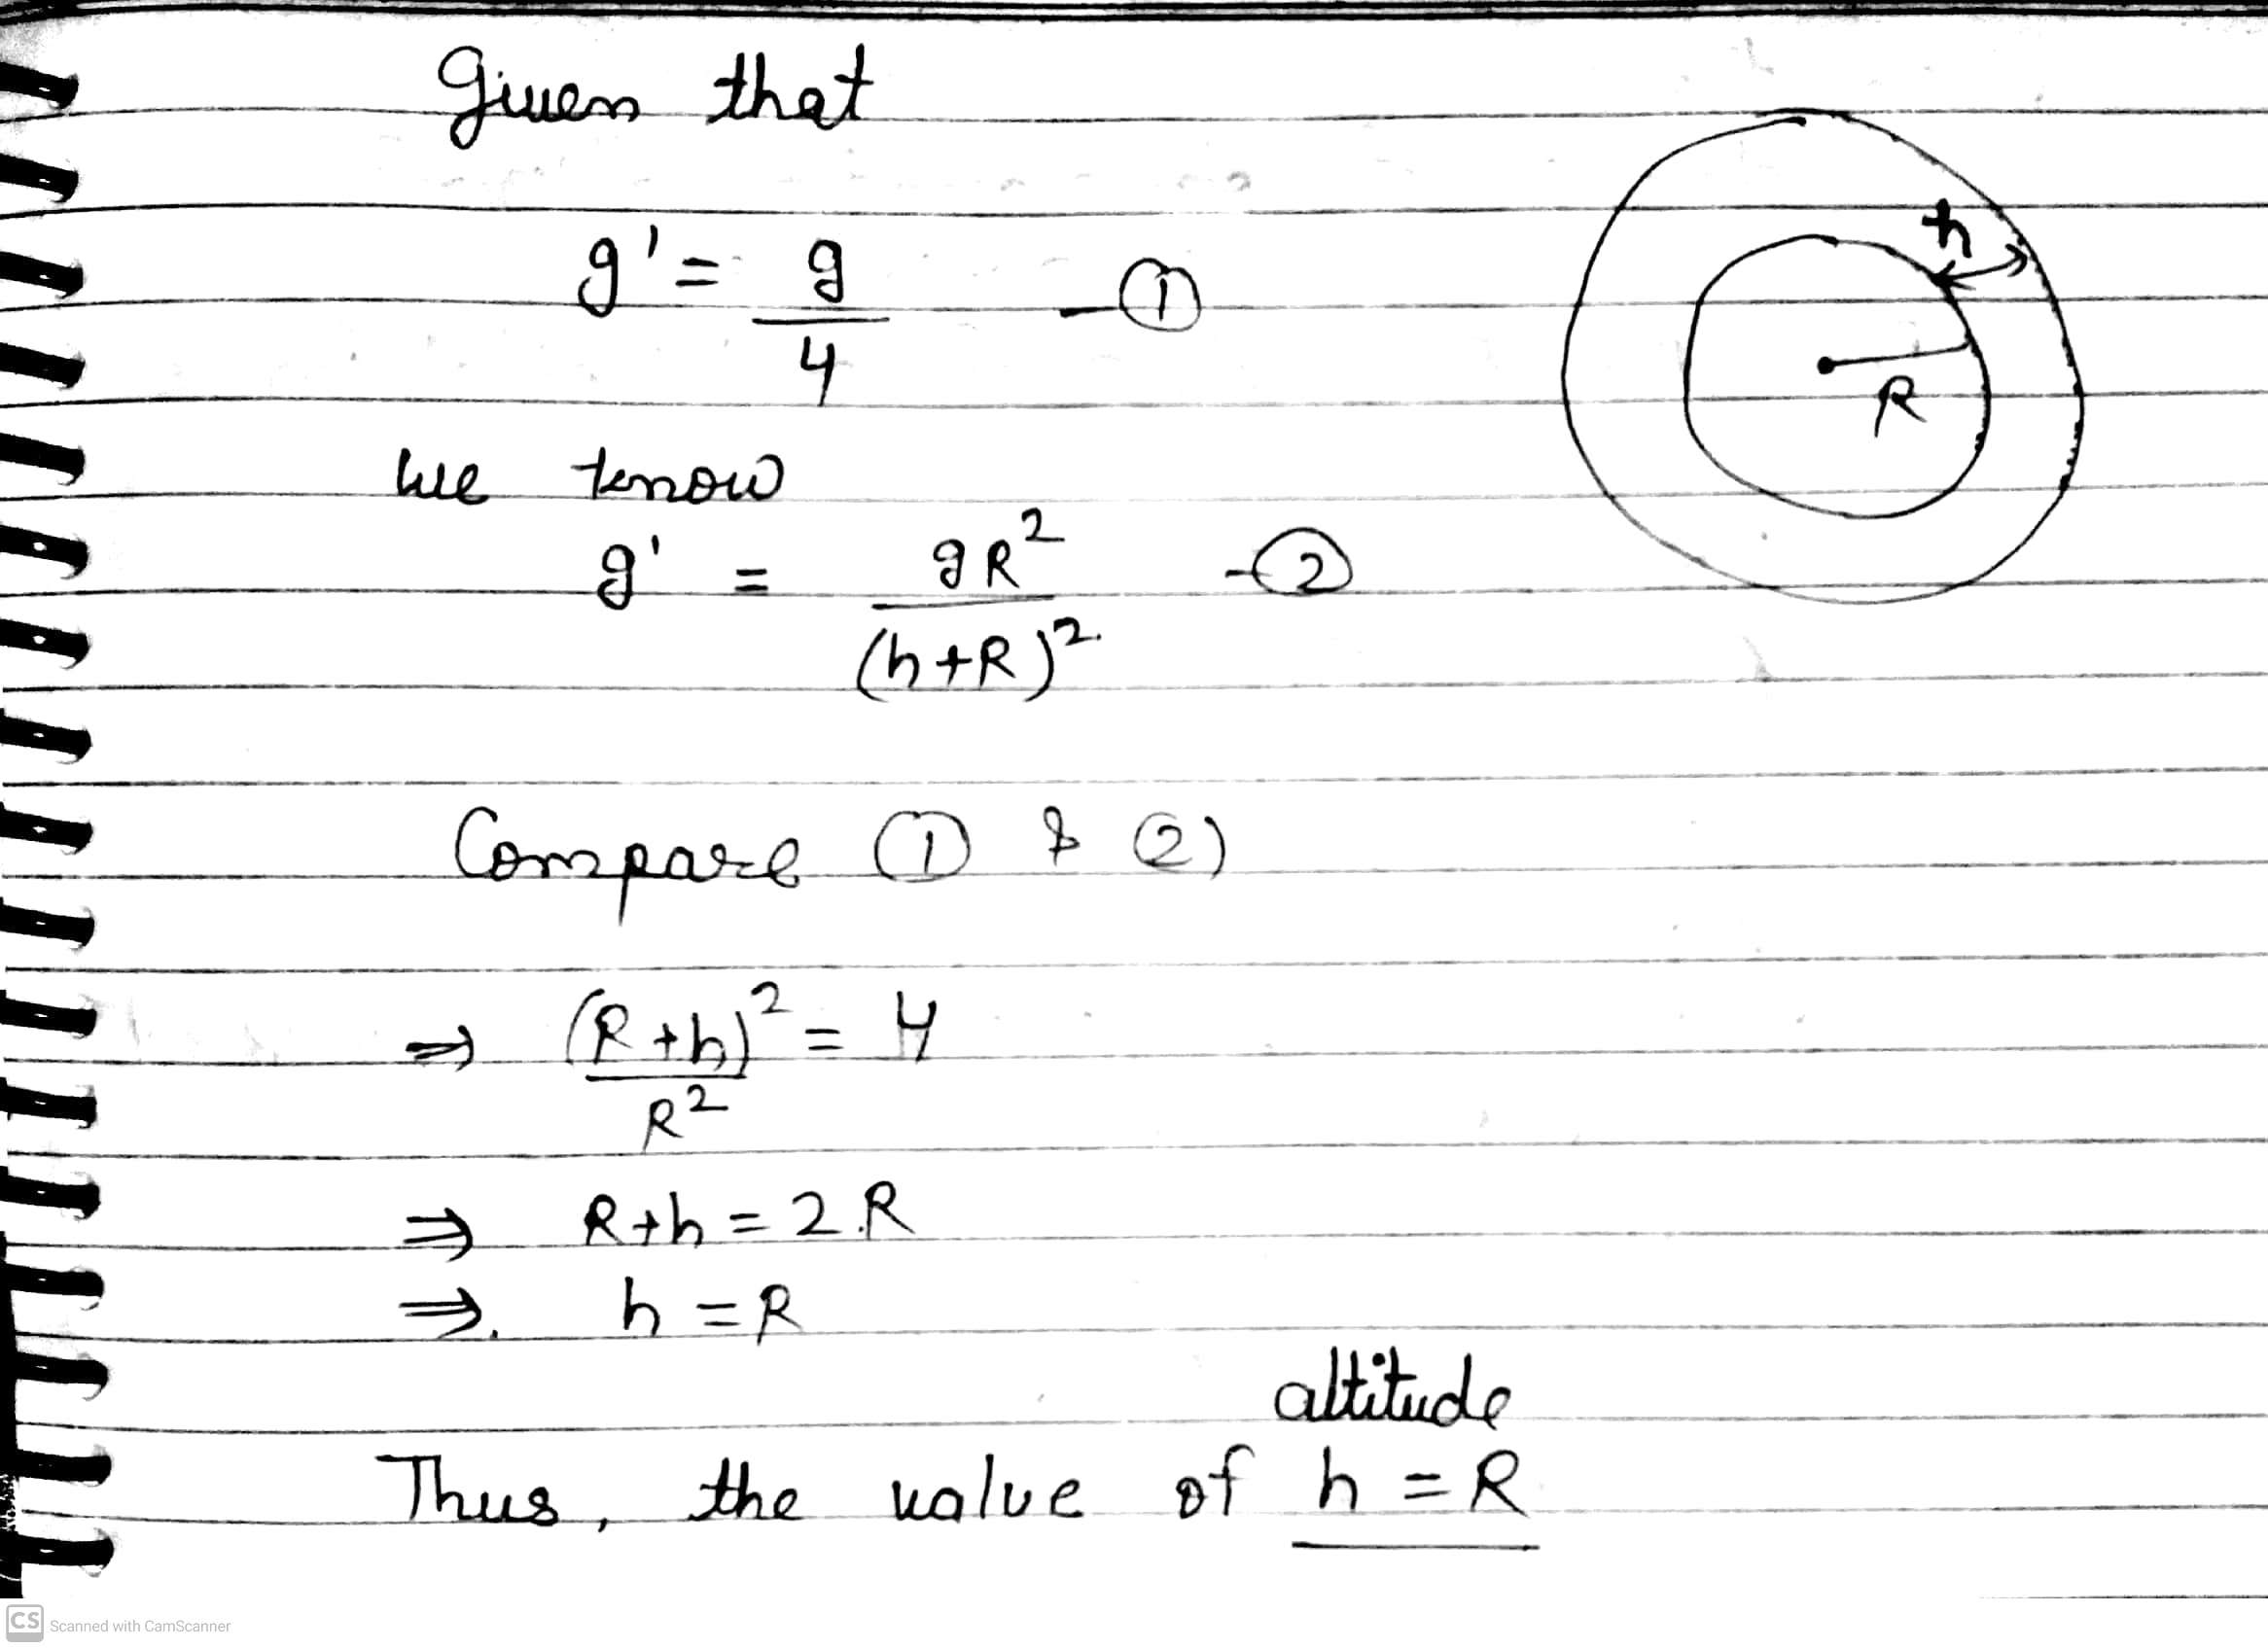 Given that
g' = g/4 - ①
h
R
We know
g' = gR²/(h+R)² - ②
Compare ① & ②
⇒ (R+h)²/R² = 4
⇒ R+h = 2.R
⇒. h = R
altitude
Thus, the value of h = R
CS Scanned with CamScanner